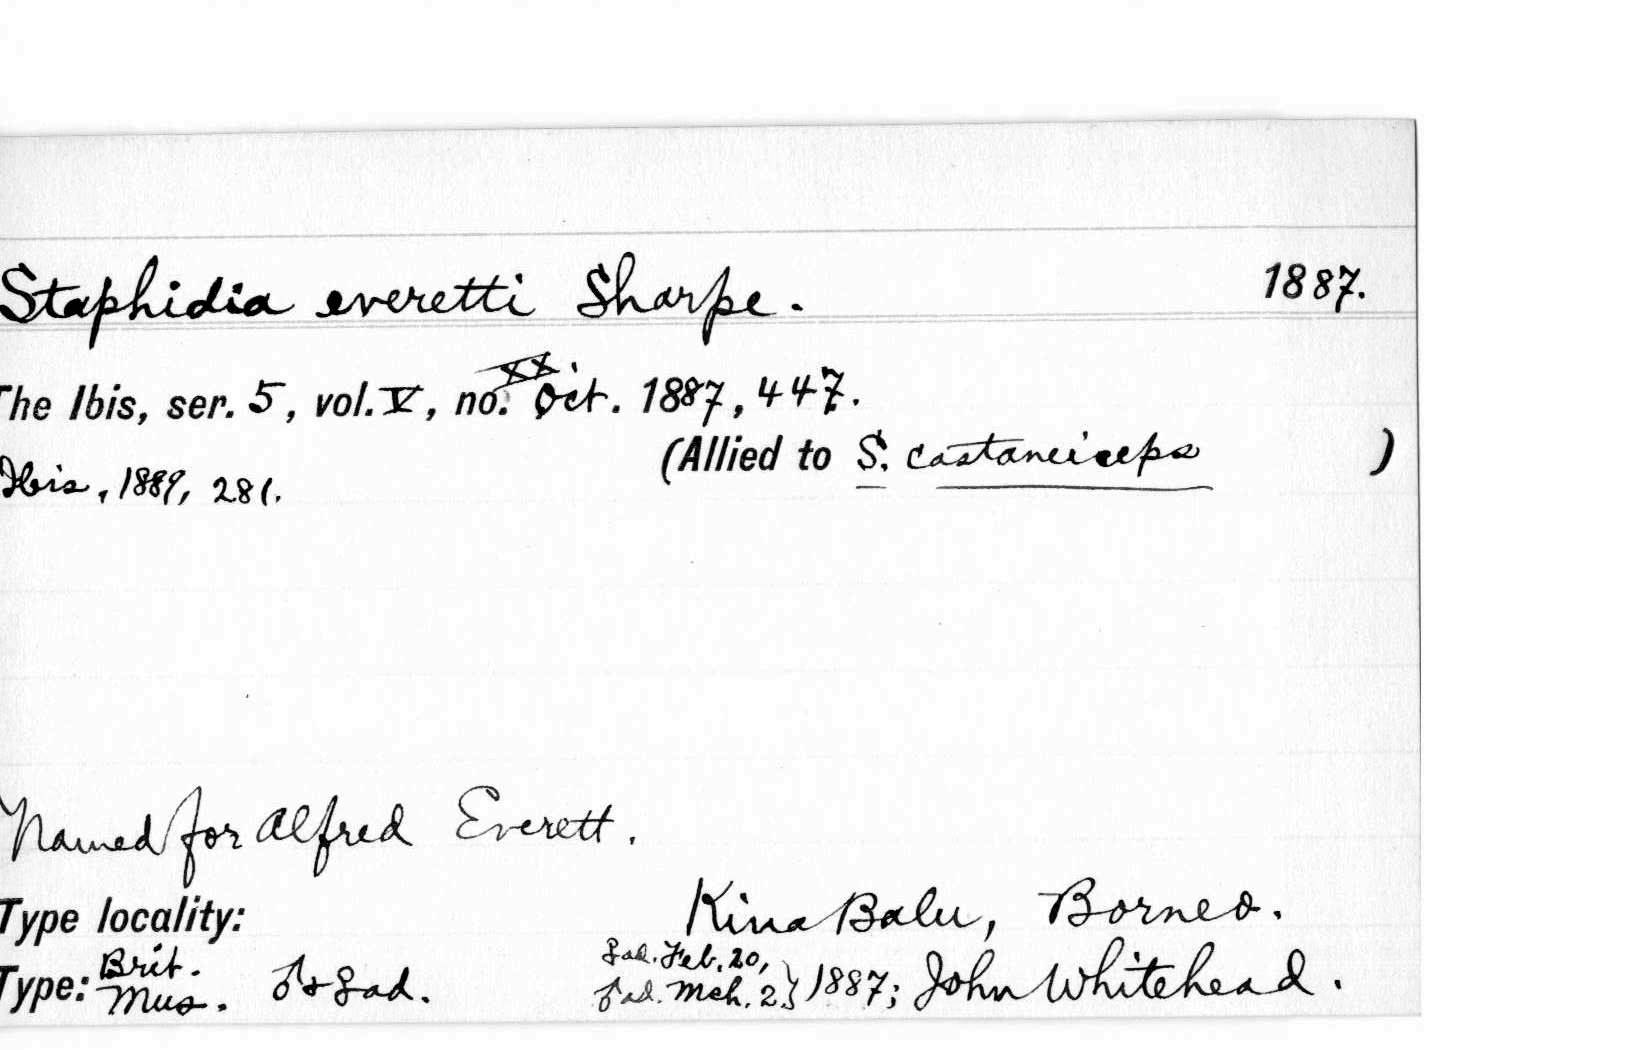 Staphidia everetti Sharpe. 1887.
The Ibis, ser. 5, vol. V, no. XX. Oct. 1887, 447.
(Allied to S. castaneiceps )
Ibis, 1889, 281.
Named for Alfred Everett.
Type locality: Kina Balu, Borneo.
Type: Brit. Mus. ♂ & ♀ ad. ♀ ad. Feb. 20, ♂ ad. Mch. 2} 1887; John Whitehead.